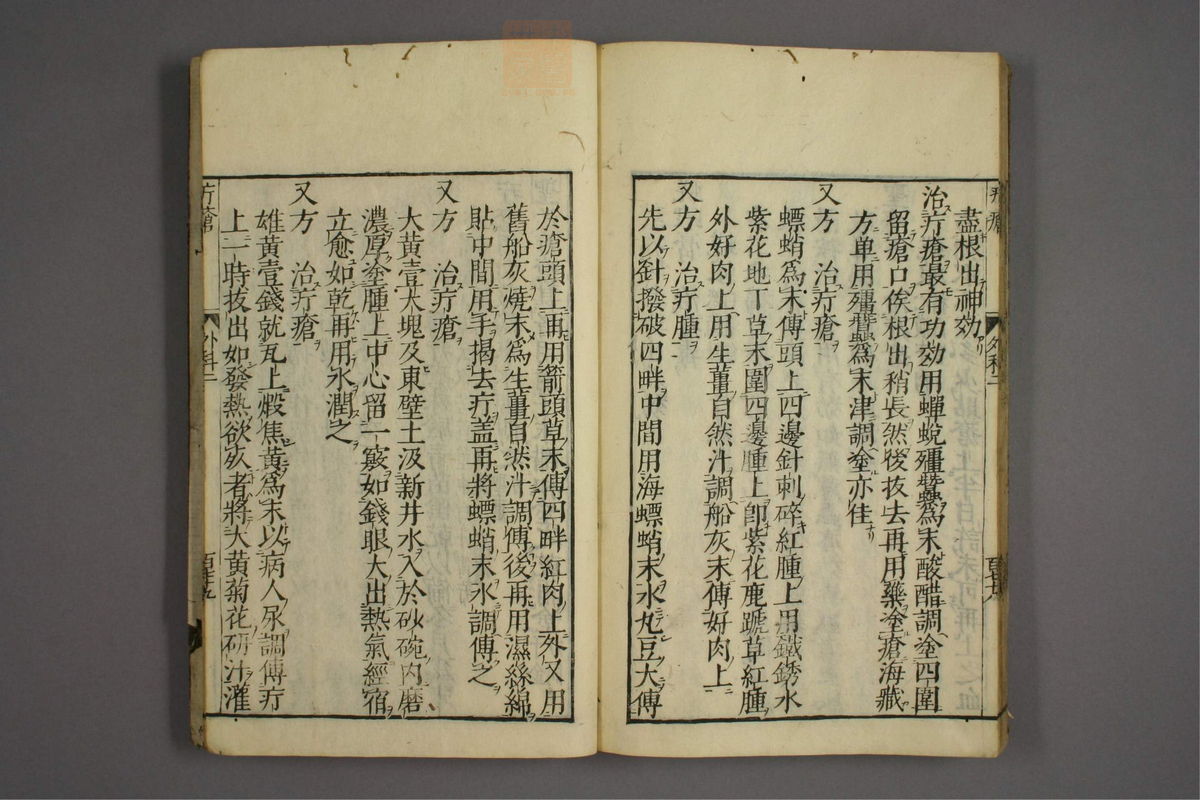 盡根出神効
治疔瘡最有功効用蟬蛻殭蠶爲末酸醋調塗四圍
留瘡口俟根出稍長然後抜去再用藥塗瘡海藏
方单用殭蠶爲末津調塗亦佳
又方 治疔瘡
螵蛸爲末傅頭上四邊針刺碎紅腫上用鐵銹水
紫花地丁草末圍四邊腫上卽紫花鹿蹏草紅腫
外好肉上用生薑自然汁調船灰末傅好肉上
又方 治疔腫
先以針撥破四畔中間用海螵蛸末水丸豆大傅
疔瘡 外科二
於瘡頭上再用箭頭草末傅四畔紅肉上外又用
舊船灰燒末爲生薑自然汁調傅後再用濕絲綿
貼中間用手揭去疔盖再將螵蛸末水調傅之
又方 治疔瘡
大黄壹大塊及東壁土汲新井水入於砂碗内磨
濃厚塗腫上中心留一竅如錢眼大出熱氣經宿
立愈如乾再用水潤之
又方 治疔瘡
雄黄壹錢就瓦上煅焦黄爲末以病人尿調傅疔
上一時抜出如發熱欲死者將大黄菊花研汁灌
疔瘡 外科二